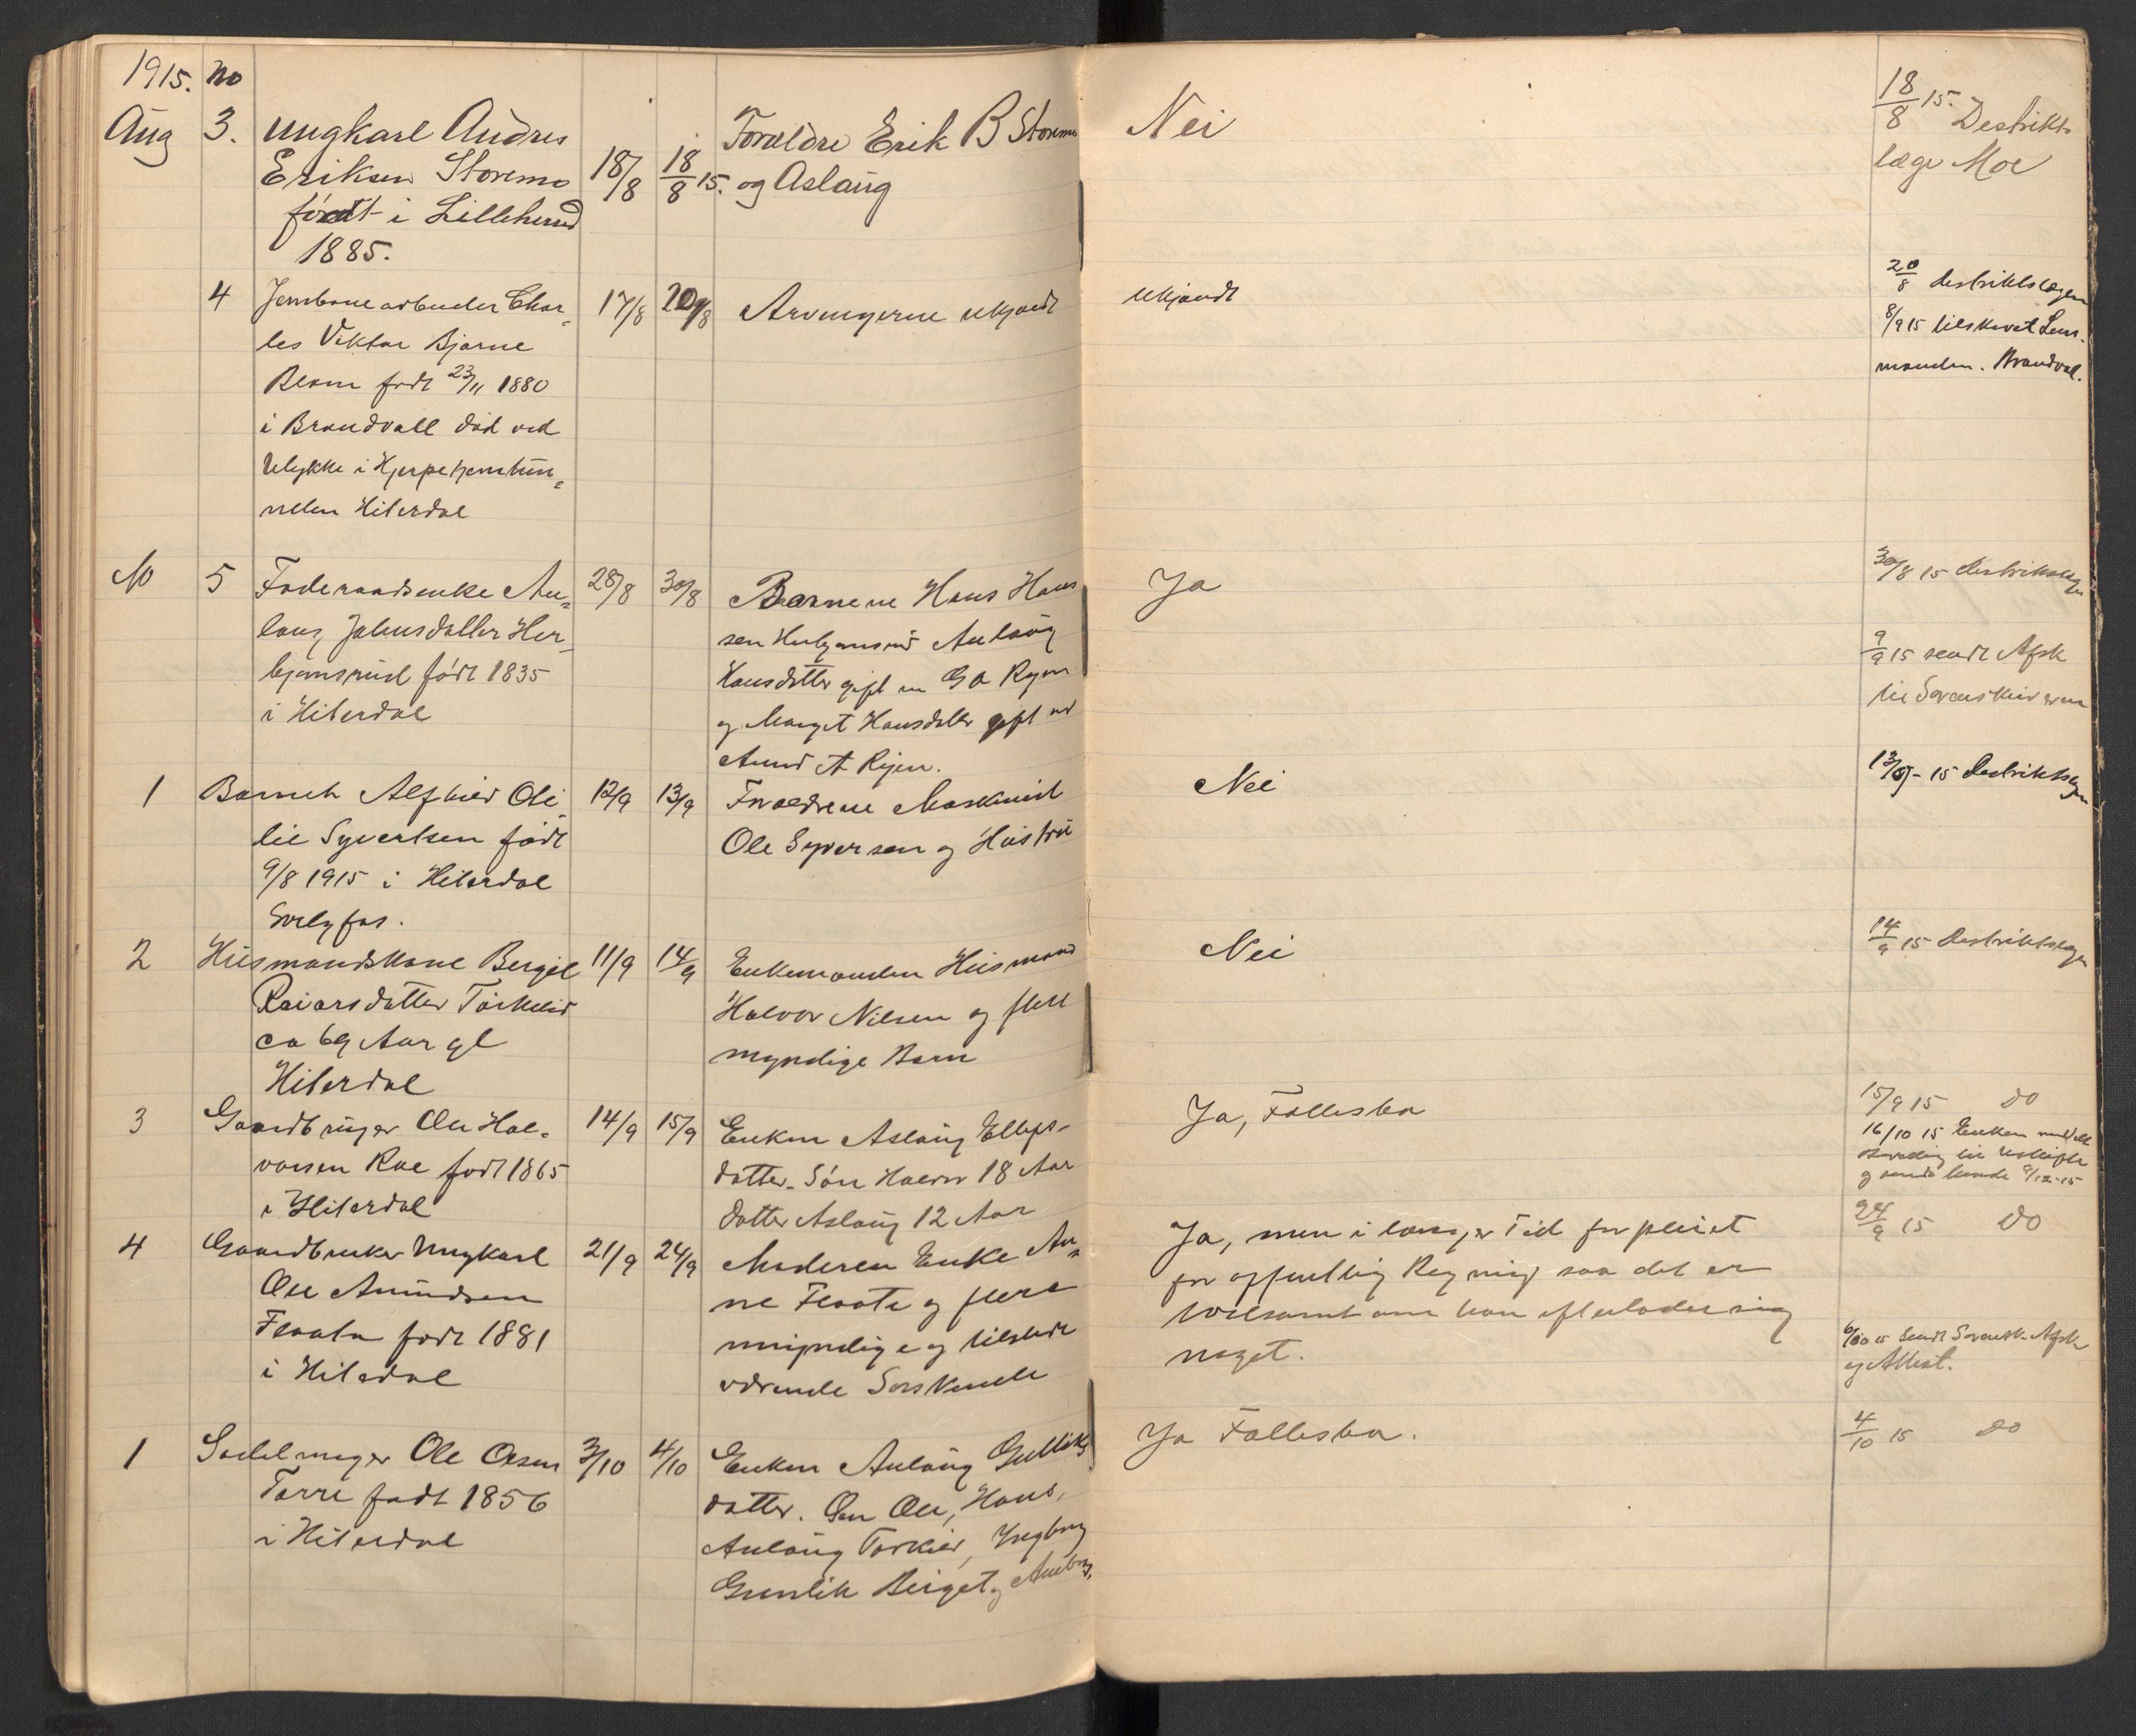 1915. No
Aug 3. Ungkarl Andres
Eriksen Storemo 18/8 18/8 15.
født i Lilleherred
1885.
Forældre Erik B Storemo
og Aslaug
Nei
18/8 15. Destrikts
læge Moe
4 Jernbanearbeider Char-
les Viktor Bjarne 17/8 20/8
født 23/11 1880
i Brandvall død ved
Ulykke i
nelen Hiterdal
Arvingerne ukjendt
ukjendt
20/8 destriktslægen
8/9 15 tilskrevet Lens-
manden. Brandval.
No 5 Føderaadsenke Au- 28/8 30/8
laug Johnsdatter Her-
bjørnsrud født 1835
i Hiterdal
Barnene Hans Han
sen Aulaug
Hansdatter gift m G A Ryen
og Marget Hansdatter gift m
Amund A Ryen.
Ja
30/8 15 destriktslægen
9/9 15 sendt Afsk
til Sorenskriveren
1 Barnet Alfhild Oti 12/9 13/9
lie Syvertsen født
9/8 1915 i Hiterdal
Foreldrene Maskinist
Ole Syversen og Hustru
Nei
13/9 - 15 Destriktslægen
2 Husmandskone Bergit 11/9 14/9
ca 69 Aar gl
Hiterdal
Enkemanden Husmand
Halvor Nilsen og flere
myndige Barn
Nei
14/9 15 Destriktslægen
3 Gaardbruger Ole Hal- 14/9 15/9
vorsen født 1865
i Hiterdal
Enken Aslaug Ellefs-
datter. Søn Halvor 18 Aar
datter Aslaug 12 Aar
Ja, Fællesbo
15/9 15 do
16/10 15 Enken
til
9/12-15
4 Gaardbruker Ungkarl 21/9 24/9
Ole Amundsen
Flaata født 1881
i Hiterdal
Moderen Enke An-
ne Flaata og flere
umyndige og tilstede
værende Søskende
Ja, men i længer Tid forpleiet
for offentlig Regning saa det er
tvilsomt om han efterlader sig
noget.
24/9 15 do
6/10 15 Sendt Sorensk. Afsk
og Attest.
1 Sadelmager Ole Olsen 3/10 4/10
født 1856
i Hiterdal
Enken Aulaug Gulliks
datter. Ole, Hans,
Aulaug Torkild, Ingeborg
Gunlik Birget og
Ja Fællesbo.
4/10 15 do